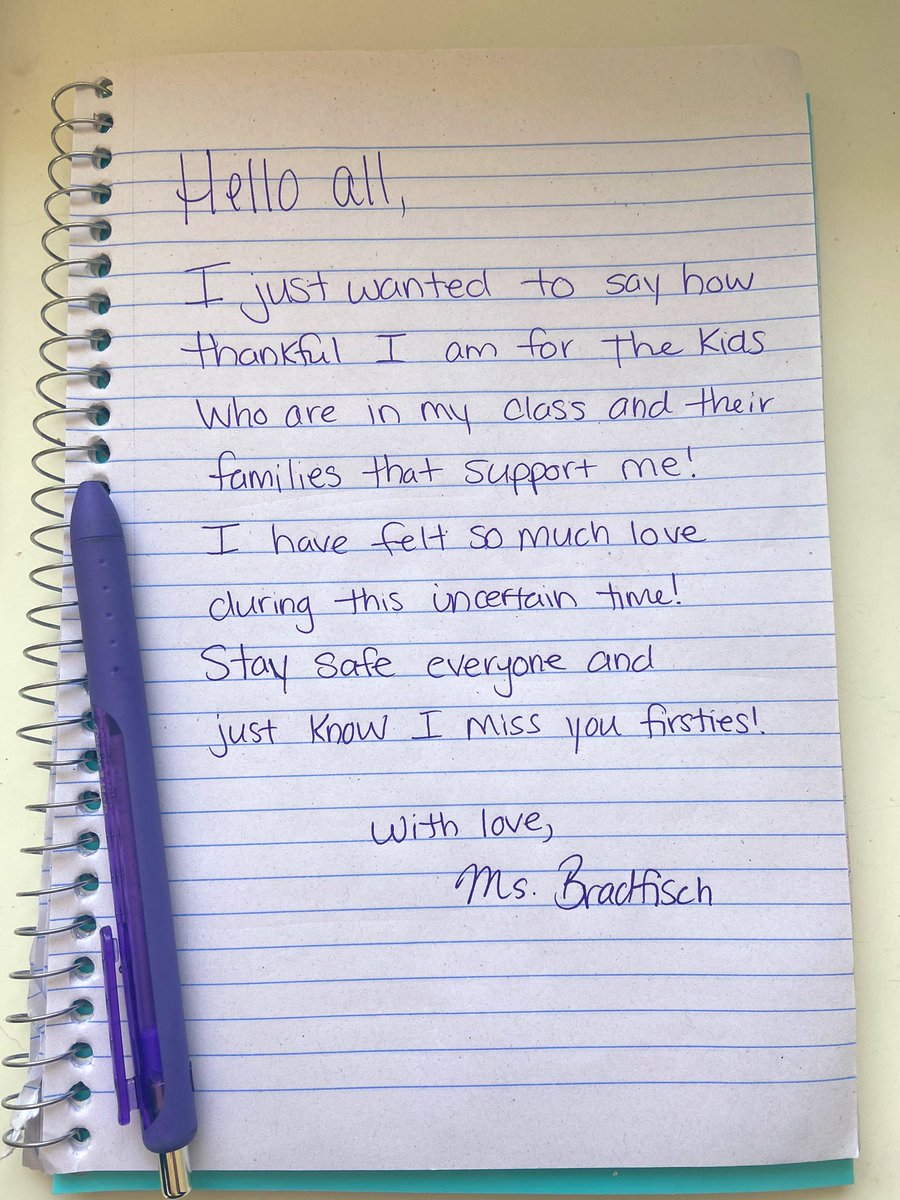 Hello all,
I just wanted to say how
thankful I am for the kids
who are in my class and their
families that support me!
I have felt so much love
during this uncertain time!
Stay safe everyone and
just know I miss you firsties!
With love,
Ms. Bradtfisch